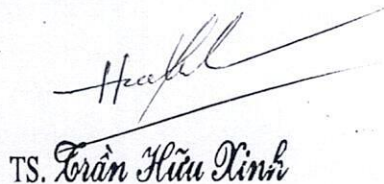 TS. Trần Hữu Xinh